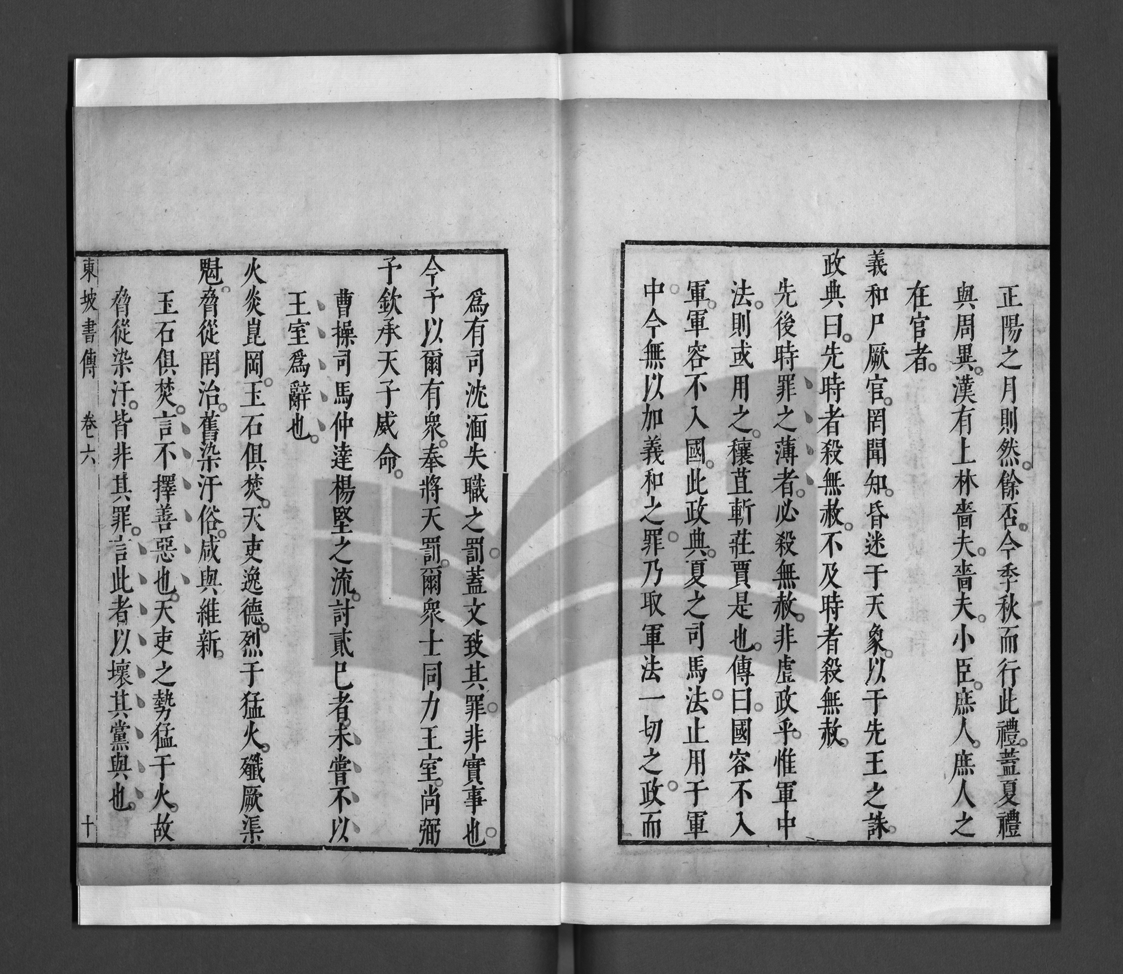 正陽之月則然。餘否。今季秋而行此禮。蓋夏禮
與周異。漢有上林嗇夫。嗇夫。小臣。庶人。庶人之
在官者。
羲和尸厥官。罔聞知。昏迷于天象。以干先王之誅。
政典曰。先時者殺無赦。不及時者殺無赦。
先後時罪之薄者。必殺無赦。非虐政乎。惟軍中
法。則或用之。穰苴斬莊賈是也。傳曰。國容不入
軍。軍容不入國。此政典。夏之司馬法。止用于軍
中。今無以加羲和之罪。乃取軍法一切之政。而
爲有司沈湎失職之罰。蓋文致其罪。非實事也。
今予以爾有衆。奉將天罰。爾衆士同力王室。尚弼
予欽承天子威命。
曹操司馬仲達楊堅之流。討貳已者。未嘗不以
王室爲辭也。
火炎崑岡。玉石俱焚。天吏逸德。烈于猛火。殲厥渠
魁。脅從罔治。舊染汙俗。咸與維新。
玉石俱焚。言不擇善惡也。天吏之勢猛于火。故
脅從染汙。皆非其罪。言此者以壞其黨與也。
東坡書傳 卷六 十